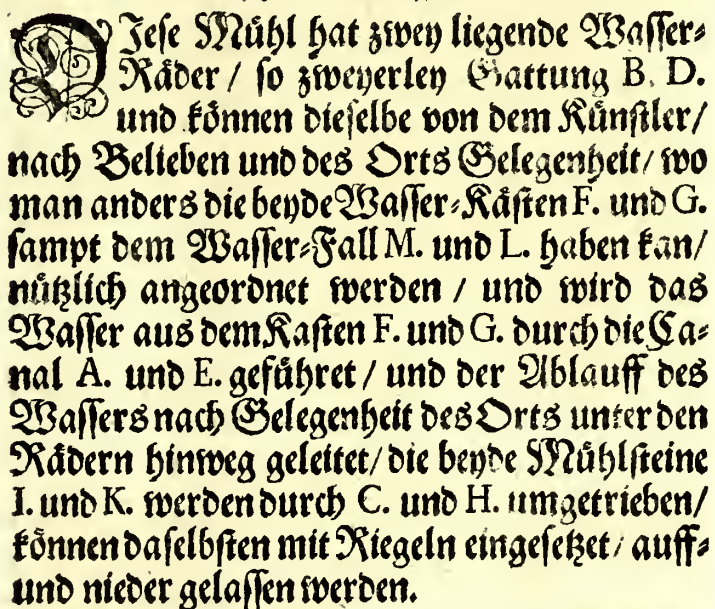 DJese Mühl hat zwey liegende Wasser-
Räder / so zweyerley Gattung B. D.
und können dieselbe von dem Künstler/
nach Belieben und des Orts Gelegenheit/ wo
man anders die beyde Wasser-Kästen F. und G.
sampt dem Wasser-Fall M. und L. haben kan/
nützlich angeordnet werden / und wird das
Wasser aus dem Kasten F. und G. durch die Ca-
nal A. und E. geführet / und der Ablauff des
Wassers nach Gelegenheit des Orts unter den
Rädern hinweg geleitet/ die beyde Mühlsteine
I. und K. werden durch C. und H. umgetrieben/
können daselbsten mit Riegeln eingesetzet/ auff-
und nieder gelassen werden.